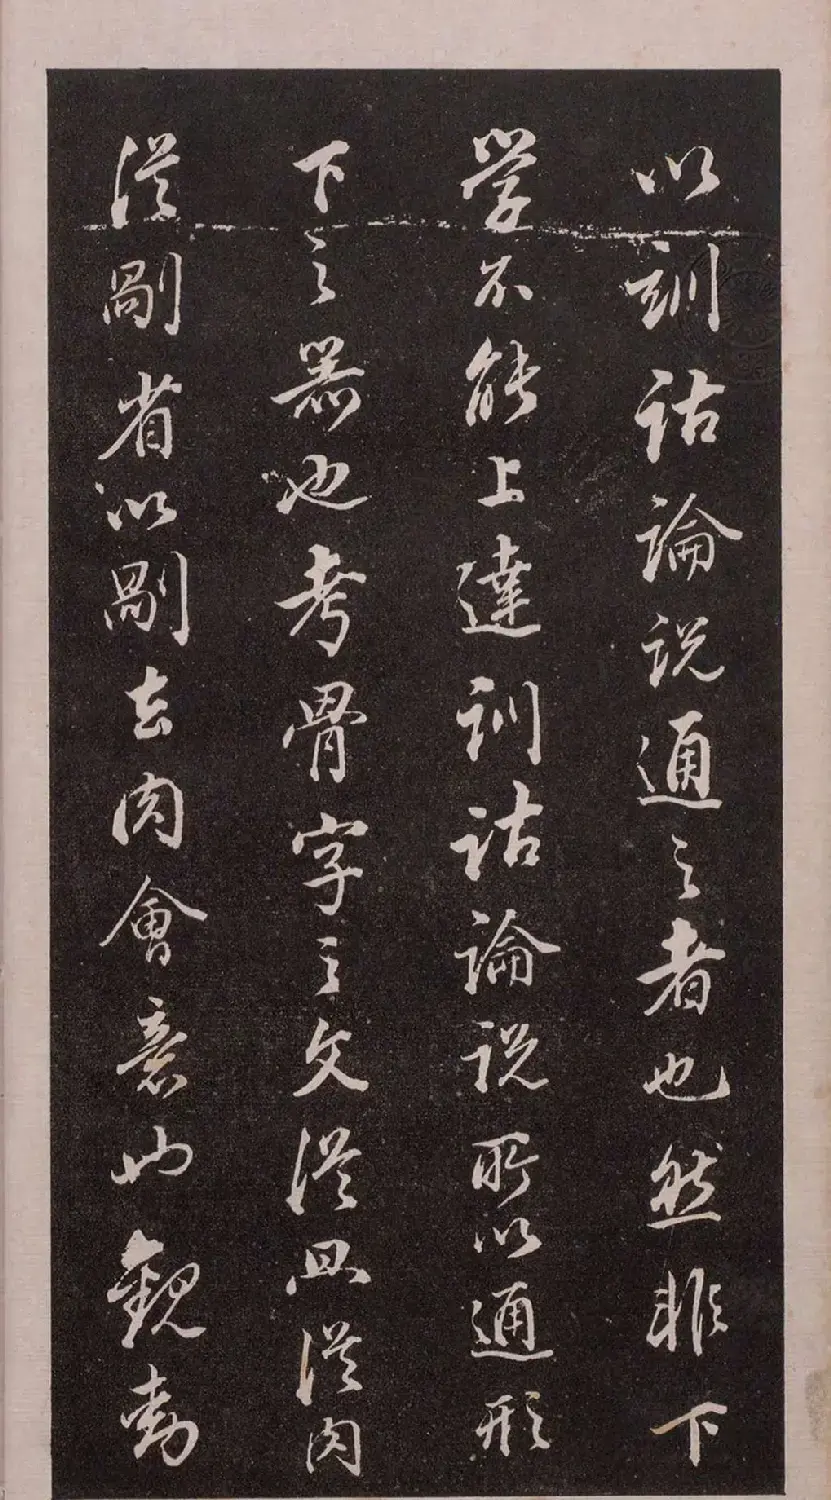 以訓詁論説通之者也然非下
學不能上達訓詁論説所以通形
下之器也考骨字之文從從肉
從剮省以剮去肉會意也觀動